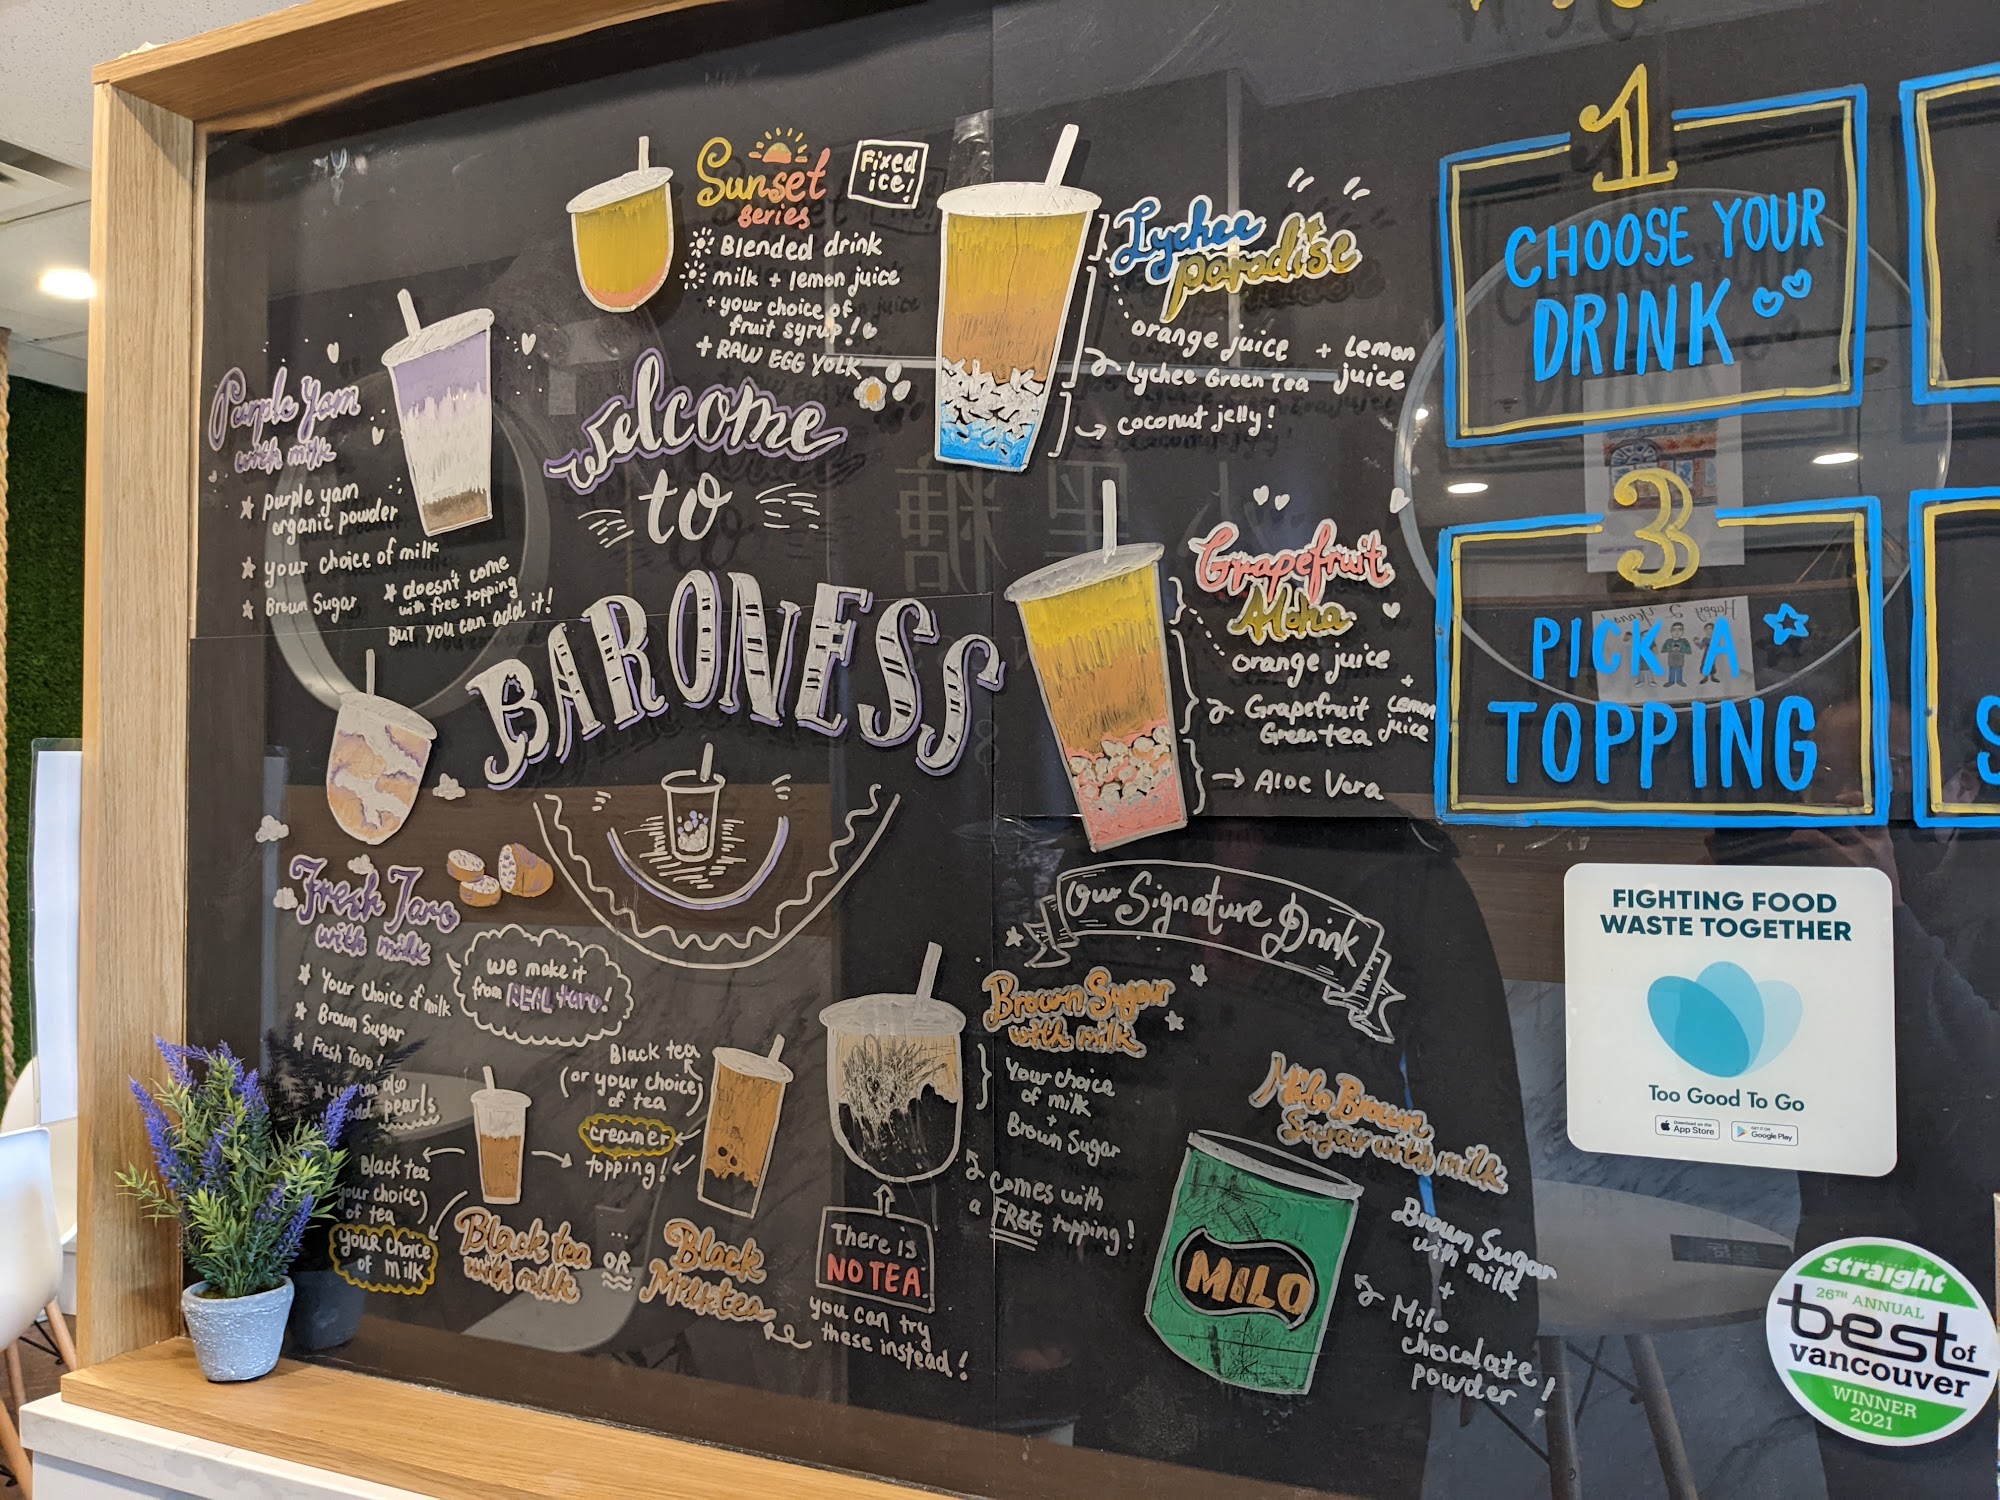 Sunset
series
Fixed
ice!
Blended drink
milk + lemon juice
+ your choice of
fruit syrup!
+ RAW EGG YOLK
Lychee
paradise
orange juice + Lemon
juice
Lychee Green Tea
coconut jelly!
Purple Yam
with milk
purple yam
organic powder
your choice of milk
Brown Sugar
* doesn't come
with free topping
BUT you can add it!
welcome
to
BARONESS
Grapefruit
Aloha
orange juice
+
Lemon
juice
Grapefruit
Green tea
Aloe Vera
Fresh Taro
with milk
Your choice of milk
Brown Sugar
Fresh Taro!
you can also
add pearls
we make it
from REAL taro!
Black tea
(or your choice)
of tea
creamer
topping!
Black tea
your choice)
of tea
your choice
of milk
Black tea
with milk
...
OR
Black
Milktea
Our Signature Drink
Brown Sugar
with milk
Your choice
of milk
+
Brown Sugar
comes with
a FREE topping!
There is
NO TEA
you can try
these instead!
Milo Brown
Sugar with milk
MILO
Brown Sugar
with milk
+
Milo
chocolate
powder!
1
CHOOSE YOUR
DRINK
3
PICK A
TOPPING
S
Happy 2
Years!
FIGHTING FOOD
WASTE TOGETHER
Too Good To Go
Download on the
App Store
GET IT ON
Google Play
straight
26TH ANNUAL
best of
vancouver
WINNER
2021